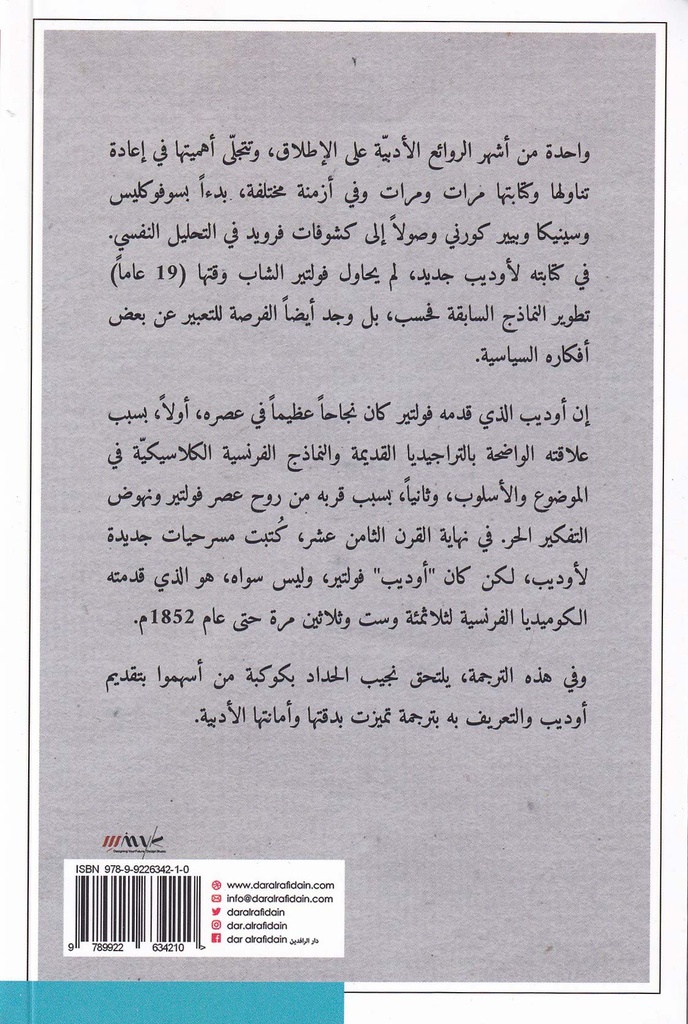 واحدة من أشهر الروائع الأدبيّة على الإطلاق، وتتجلّى أهميتها في إعادة
تناولها وكتابتها مرات ومرات وفي أزمنة مختلفة، بدءاً بسوفوكليس
وسينيكا وبيير كورني وصولاً إلى كشوفات فرويد في التحليل النفسي.
في كتابته لأوديب جديد، لم يحاول فولتير الشاب وقتها (19 عاماً)
تطوير النماذج السابقة فحسب، بل وجد أيضاً الفرصة للتعبير عن بعض
أفكاره السياسية.
إن أوديب الذي قدمه فولتير كان نجاحاً عظيماً في عصره، أولاً، بسبب
علاقته الواضحة بالتراجيديا القديمة والنماذج الفرنسية الكلاسيكيّة في
الموضوع والأسلوب، وثانياً، بسبب قربه من روح عصر فولتير ونهوض
التفكير الحر. في نهاية القرن الثامن عشر، كُتبت مسرحيات جديدة
لأوديب، لكن كان "أوديب" فولتير، وليس سواه، هو الذي قدمته
الكوميديا الفرنسية لثلاثمئة وست وثلاثين مرة حتى عام 1852م.
وفي هذه الترجمة، يلتحق نجيب الحداد بكوكبة من أسهموا بتقديم
أوديب والتعريف به بترجمة تميزت بدقتها وأمانتها الأدبية.
ISBN 978-9-9226342-1-0
www.daralrafidain.com
info@daralrafidain.com
daralrafidain
dar.alrafidain
dar alrafidain دار الرافدين
9 789922 634210 >